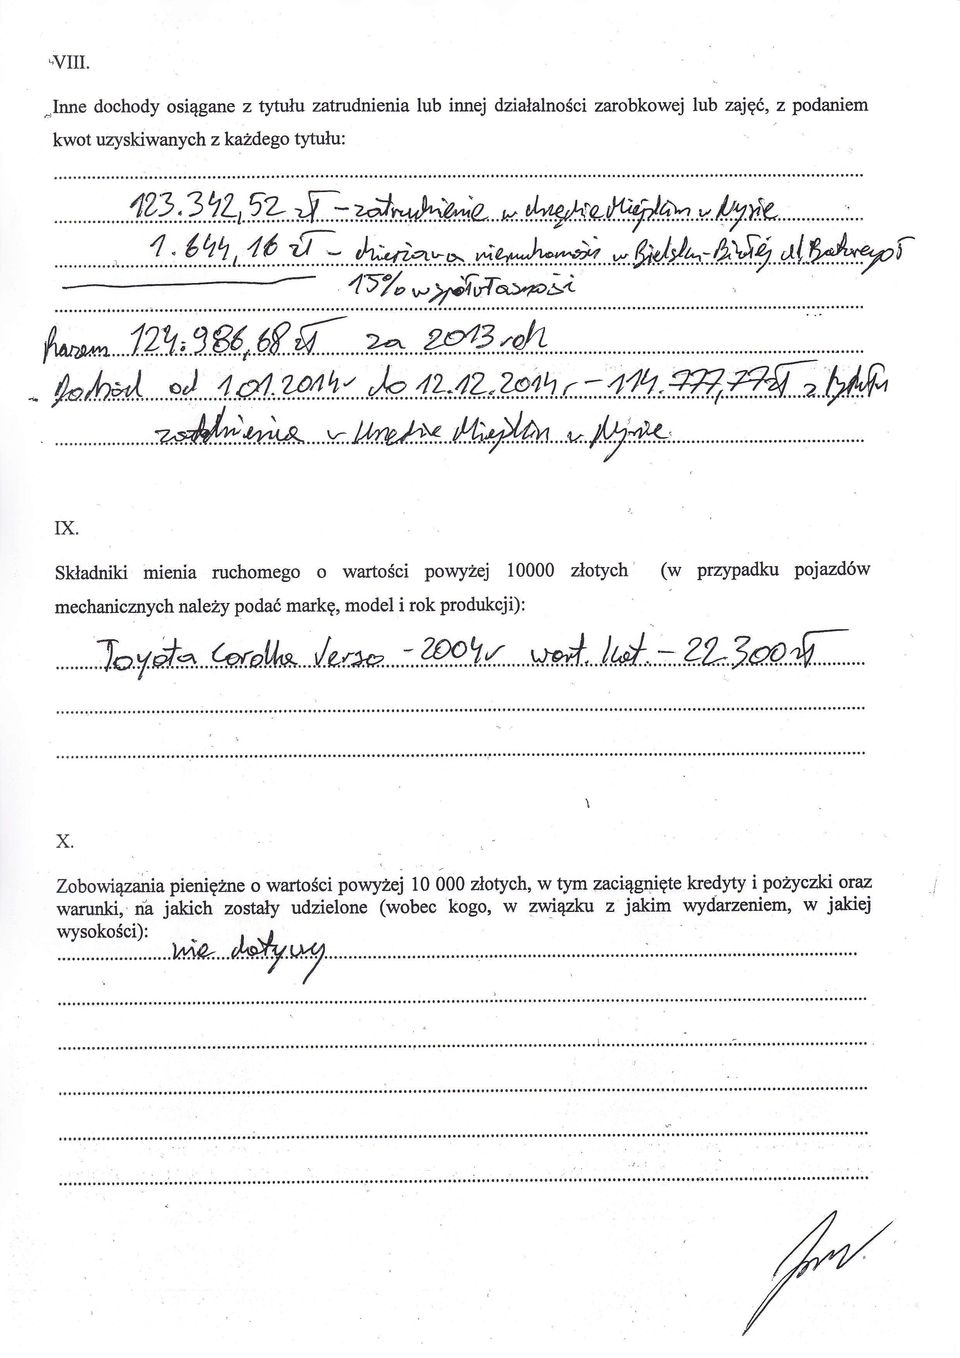 VIII.
Inne dochody osiągane z tytułu zatrudnienia lub innej działalności zarobkowej lub zajęć, z podaniem
kwot uzyskiwanych z każdego tytułu:
123.342,52 zł – zatrudnienie w Urzędzie Miejskim w Nysie
1.644,16 zł – dzierżawa nieruchomości w Bielsku-Białej ul
15% współwłasności
Razem 124.986,68 zł za 2013 rok
- Dochód od 1.01.2014 r do 12.12.2014 r – 114.777,77 zł z tytułu
zatrudnienia w Urzędzie Miejskim w Nysie.
IX.
Składniki mienia ruchomego o wartości powyżej 10000 złotych (w przypadku pojazdów
mechanicznych należy podać markę, model i rok produkcji):
Toyota Corolla Verso - 2004 r wart. kat. – 22.300 zł
X.
Zobowiązania pieniężne o wartości powyżej 10 000 złotych, w tym zaciągnięte kredyty i pożyczki oraz
warunki, na jakich zostały udzielone (wobec kogo, w związku z jakim wydarzeniem, w jakiej
wysokości):
nie dotyczy